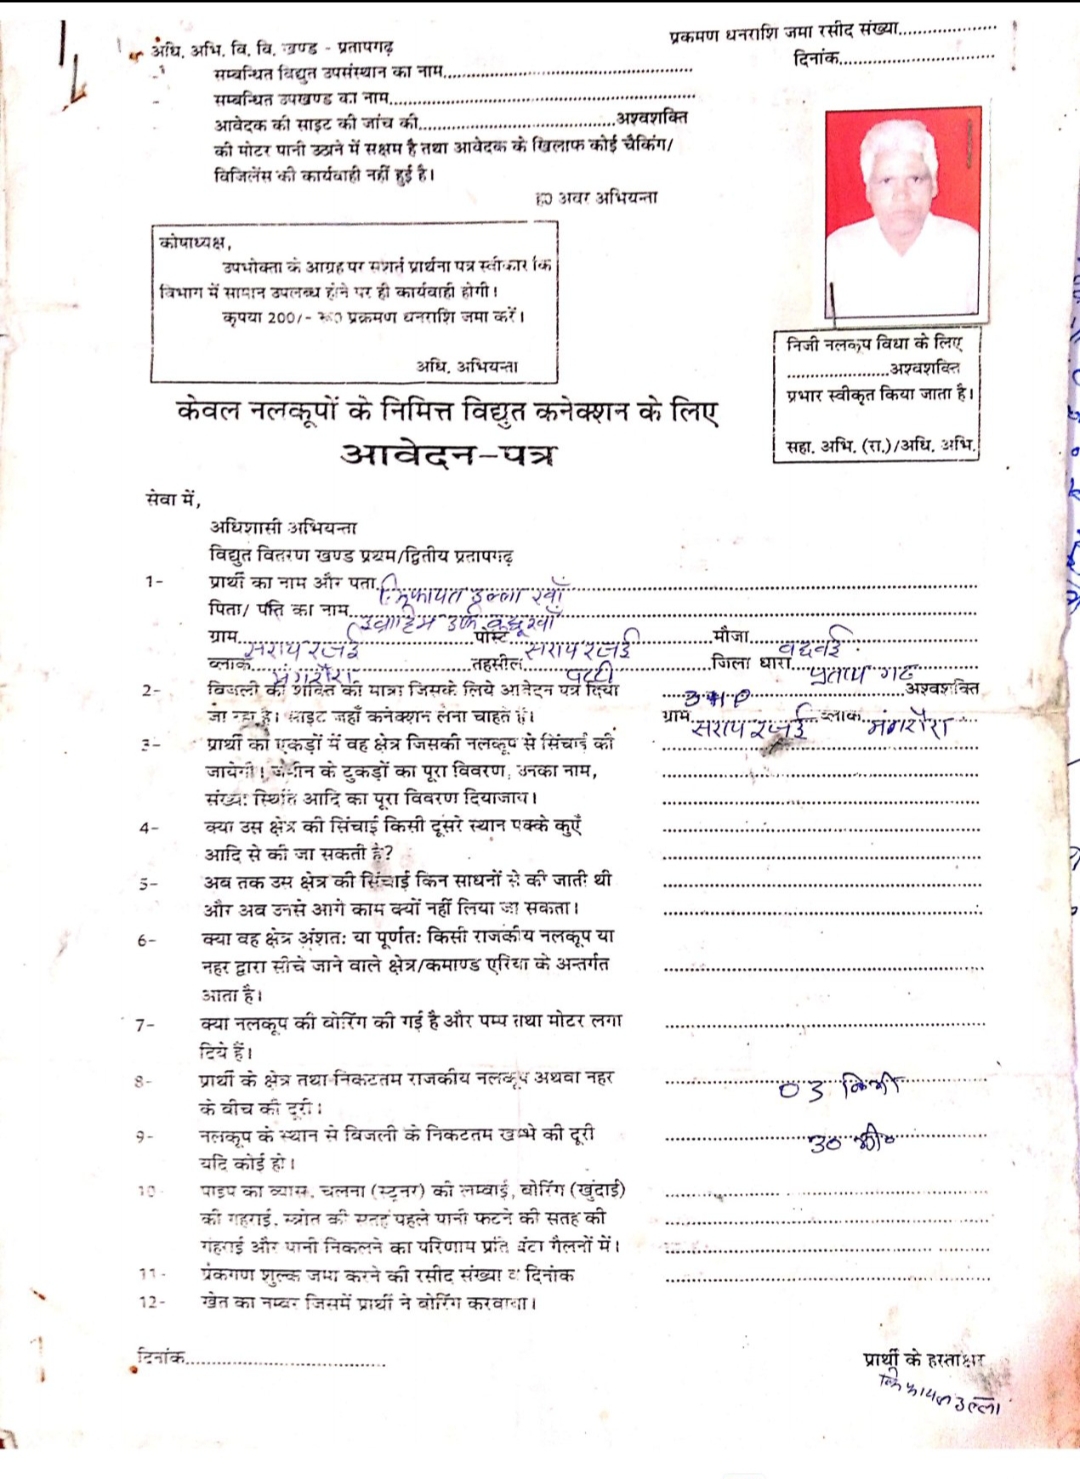 प्रकमण धनराशि जमा रसीद संख्या..................
दिनांक............................
अधि. अभि. वि. वि. खण्ड - प्रतापगढ़
सम्बन्धित विद्युत उपसंस्थान का नाम.............................................
सम्बन्धित उपखण्ड का नाम.......................................................
आवेदक की साइट की जांच की...................................अश्वशक्ति
की मोटर पानी उठाने में सक्षम है तथा आवेदक के खिलाफ कोई चैकिंग/
विजिलेंस की कार्यवाही नहीं हुई है।
ह0 अवर अभियन्ता
कोषाध्यक्ष,
उपभोक्ता के आग्रह पर सशर्त प्रार्थना पत्र स्वीकार कि
विभाग में सामान उपलब्ध होने पर ही कार्यवाही होगी।
कृपया 200/- रू0 प्रक्रमण धनराशि जमा करें।
अधि. अभियन्ता
निजी नलकूप विधा के लिए
...................अश्वशक्ति
प्रभार स्वीकृत किया जाता है।
सहा. अभि. (रा.)/अधि. अभि.
केवल नलकूपों के निमित्त विद्युत कनेक्शन के लिए
आवेदन-पत्र
सेवा में,
अधिशासी अभियन्ता
विद्युत वितरण खण्ड प्रथम/द्वितीय प्रतापगढ़
1- प्रार्थी का नाम और पता. किफायत उल्ला खाँ
पिता/ पति का नाम इब्राहिम उर्फ खाँ
ग्राम सराय रजई पोस्ट सराय रजई मौजा
ब्लाक मंगरौरा तहसील पट्टी जिला धारा प्रताप गढ
2- बिजली की शक्ति की मात्रा जिसके लिये आवेदन पत्र दिया 3 HP अश्वशक्ति
जा रहा है। साइट जहाँ कनेक्शन लेना चाहते हैं। ग्राम सराय रजई ब्लाक मंगरौरा
3- प्रार्थी का एकड़ों में वह क्षेत्र जिसकी नलकूप से सिंचाई की
जायेगी। जमीन के टुकड़ों का पूरा विवरण, उनका नाम,
संख्या स्थिति आदि का पूरा विवरण दियाजाय।
4- क्या उस क्षेत्र की सिंचाई किसी दूसरे स्थान पक्के कुएँ
आदि से की जा सकती है?
5- अब तक उस क्षेत्र की सिंचाई किन साधनों से की जाती थी
और अब उनसे आगे काम क्यों नहीं लिया जा सकता।
6- क्या वह क्षेत्र अंशतः या पूर्णतः किसी राजकीय नलकूप या
नहर द्वारा सीचे जाने वाले क्षेत्र/कमाण्ड एरिया के अन्तर्गत
आता है।
7- क्या नलकूप की बोरिंग की गई है और पम्प तथा मोटर लगा
दिये हैं।
8- प्रार्थी के क्षेत्र तथा निकटतम राजकीय नलकूप अथवा नहर 03 किमी
के बीच की दूरी।
9- नलकूप के स्थान से बिजली के निकटतम खम्भे की दूरी 30 मी०
यदि कोई हो।
10- पाइप का व्यास, चलना (स्ट्रनर) की लम्बाई, बोरिंग (खुंदाई)
की गहराई, स्त्रोत की सतह पहले पानी फटने की सतह की
गहराई और पानी निकलने का परिणाम प्रति घंटा गैलनों में।
11- प्रंकगण शुल्क जमा करने की रसीद संख्या व दिनांक
12- खेत का नम्बर जिसमें प्रार्थी ने बोरिंग करवाया।
दिनांक..........................................
प्रार्थी के हस्ताक्षर
किफायत उल्ला